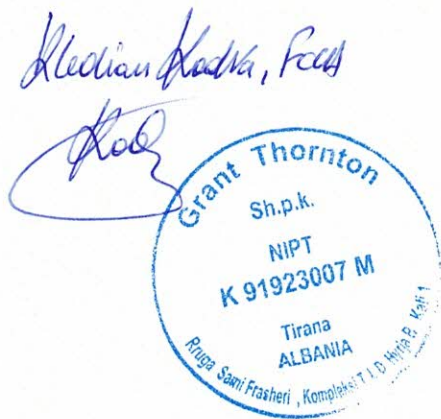 Kledian Kodra, FCCA
Grant Thornton
Sh.p.k.
NIPT
K 91923007 M
Tirana
ALBANIA
Rruga Sami Frasheri , Kompleksi T.I.D Hyrja B, Kati 1